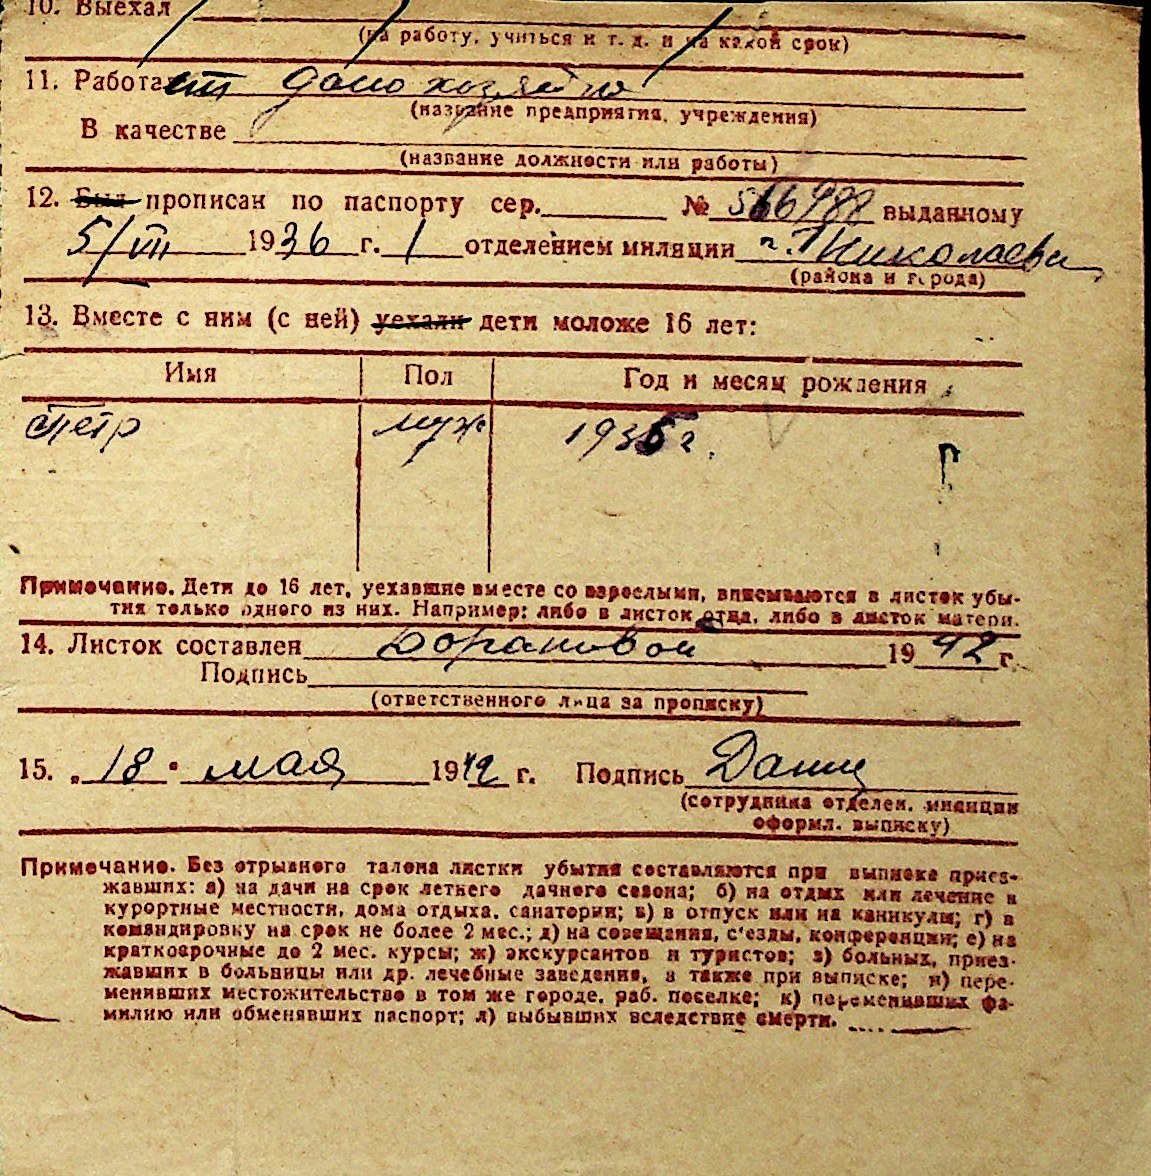 10. Выехал
(на работу, учиться и т. д. и на какой срок)
11. Работает домохозяйка
(название предприятия, учреждения)
В качестве
(название должности или работы)
12. Был прописан по паспорту сер. № 566988 выданному
5/VIII 1936 г. 1 отделением милиции г. Николаева
(района и города)
13. Вместе с ним (с ней) уехали дети моложе 16 лет:
Имя Пол Год и месяц рождения
Петр муж 1935 г.
Примечание. Дети до 16 лет, уехавшие вместе со взрослыми, вписываются в листок убы-
тия только одного из них. Например: либо в листок отца, либо в листок матери.
14. Листок составлен 1942 г.
Подпись
(ответственного лица за прописку)
15. „18" мая 1942 г. Подпись
(сотрудника отделен. милиции
оформл. выписку)
Примечание. Без отрывного талона листки убытия составляются при выписке приез-
жавших: а) на дачи на срок летнего дачного сезона; б) на отдых или лечение в
курортные местности, дома отдыха, санатории; в) в отпуск или на каникулы; г) в
командировку на срок не более 2 мес.; д) на совещания, с'езды, конференции; е) на
краткосрочные до 2 мес. курсы; ж) экскурсантов и туристов; з) больных, приез-
жавших в больницы или др. лечебные заведения, а также при выписке; и) пере-
менивших местожительство в том же городе, раб. поселке; к) переменивших фа-
милию или обменявших паспорт; л) выбывших вследствие смерти.